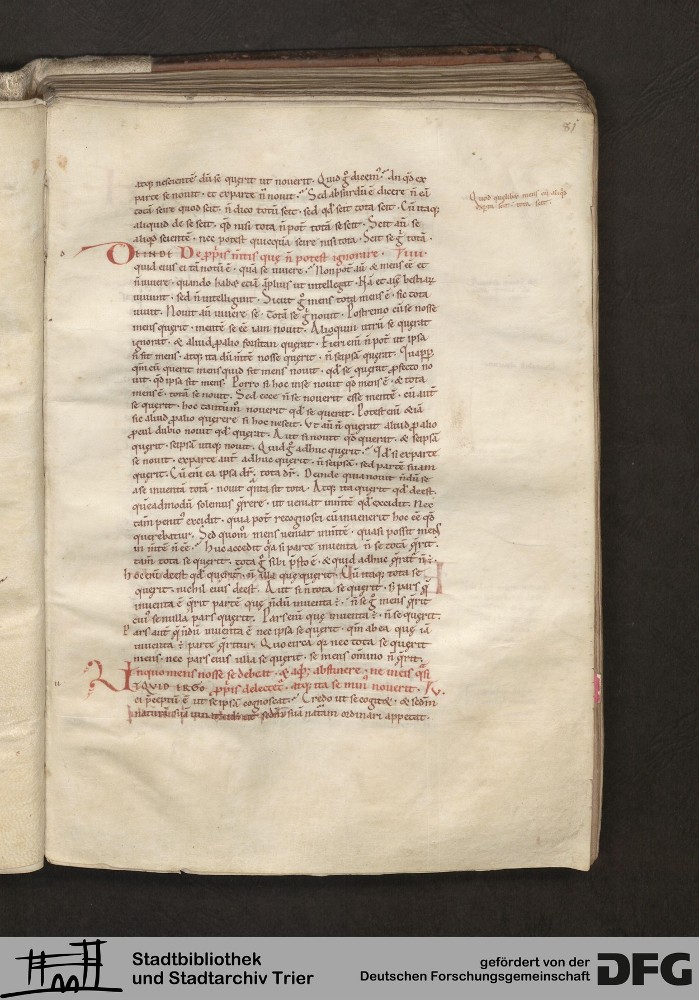 81
atq; nescientē dū se querit ut nouerit. Quid g̊ dicem⁹? An qđ ex
parte se nouit. et ex parte n̄ nouit? Sed absurdū ē dicere n̄ eā
totā scire quod scit. n̄ dico totū scit. sed qđ scit tota scit. Cū itaq;
aliquid de se scit. qđ nisi tota n̄ pot̄ totā se scit. Scit aū se
aliqd scientē. nec potest quicquā scire nisi tota. Scit se g̊ totā.
DEINDE De p̄p̄iis m̄tis que n̄ potest ignorare. IIII.
quid eius ei tā notū ē. quā se uiuere? Non pot̄ aū & mens eē et
n̄ uiuere. quando habet etiā āplius ut intellegat. Nā et aīe bestiaꝝ
uiuunt. sed n̄ intelligunt. Sicut g̊ mens tota mens ē. sic tota
uiuit. Nouit aū uiuere se. Totā se g̊ nouit. Postremo cū se nosse
mens querit. mentē se eē iam nouit. Alioquin utrū se querat
ignorat. & aliud p̄ alio forsitan querat. Fieri enī n̄ pot̄ ut ipsa
n̄ sit mens. atq; ita dū m̄tē nosse querit. n̄ seipsā querat.
qm̄ cū querit mens quid sit mens nouit. qđ se querat p̄fecto no
uit. qđ ipsa sit mens. Porro si hoc in se nouit qđ mens ē. & tota
mens ē. totā se nouit. Sed ecce n̄ se nouerit esse mentē. cū aut̄
se querit. hoc tantūm̊ nouerit qđ se querat. Potest enī etiā
sic aliud p̄ alio querere si hoc nescit. Ut aū n̄ querat aliud p̄ alio
p̄cul dubio nouit qđ querat. Aut si nouit qđ querat. & seipsā
querit. seipsā utiq; nouit. Quid g̊ adhuc querit? Qđ si ex parte
se nouit. ex parte aut̄ adhuc querit. n̄ seipsā. sed partē suam
querit. Cū enī ea ipsa dr̄. tota dr̄. Deinde quia nouit n̄dū se
a se inuentā totā. nouit q̄nta sit tota. Atq; ita querit qđ deest.
quēadmodū solemus q̄rere. ut ueniat in m̄tē qđ excidit. Nec
tam penit⁹ excidit. quia pot̄ recognosci cū inuenerit hoc eē qđ
querebatur. Sed quom̊ mens ueniat in m̄tē. quasi possit mens
in m̄tē n̄ eē? Huc accedit q̄a si parte inuenta n̄ se totā q̄rit.
tam tota se querit. tota g̊ sibi p̄sto ē. & quid adhuc q̄rat n̄ ē.
Hoc enī deest qđ querit. n̄ illa que querit. Cū itaq; tota se
querit. nichil eius deest. Aut si n̄ tota se querit. si pars q̄
inuenta ē q̄rit parte que n̄dū inuenta ē. n̄ se g̊ mens q̄rit
cui⁹ se nulla pars querit. Pars enī que inuenta ē. n̄ se querit.
Pars aut̄ q̄ n̄dū inuenta ē nec ipsa se querit. qm̄ ab ea que iā
inuenta ē parte q̄ritur. Quo circa q̄a nec tota se querit
mens. nec pars eius ulla se querit. se mens om̄ino n̄ q̄rit.
In quo mens nosse se debeat. & a q̄b; abstinere. ne mens q̄si
UTQUID ERGO p̄p̄iis delectet̄. atq; ita se mīn nouerit. V.
ei p̄ceptū ē ut seipsā cognoscat? Credo ut se cogitet. & sedm̄
naturā suā uiuat sedm̄ suā natam̄ ordinari appetat.
Stadtbibliothek
und Stadtarchiv Trier
gefördert von der
Deutschen Forschungsgemeinschaft
DFG